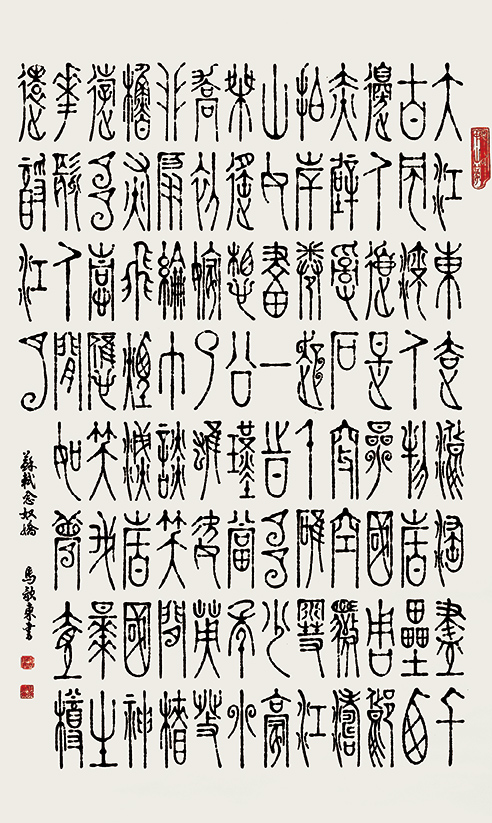 大江東去浪淘盡千
古風流人物故壘西
邊人道是三國周郎
赤壁亂石穿空驚濤
拍岸捲起千堆雪江
山如畫一時多少豪
傑遙想公瑾當年小
喬初嫁了雄姿英發
羽扇綸巾談笑間檣
櫓灰飛煙滅故國神
遊多情應笑我早生
華髮人間如夢一尊
還酹江月
蘇軾念奴嬌 馬東書